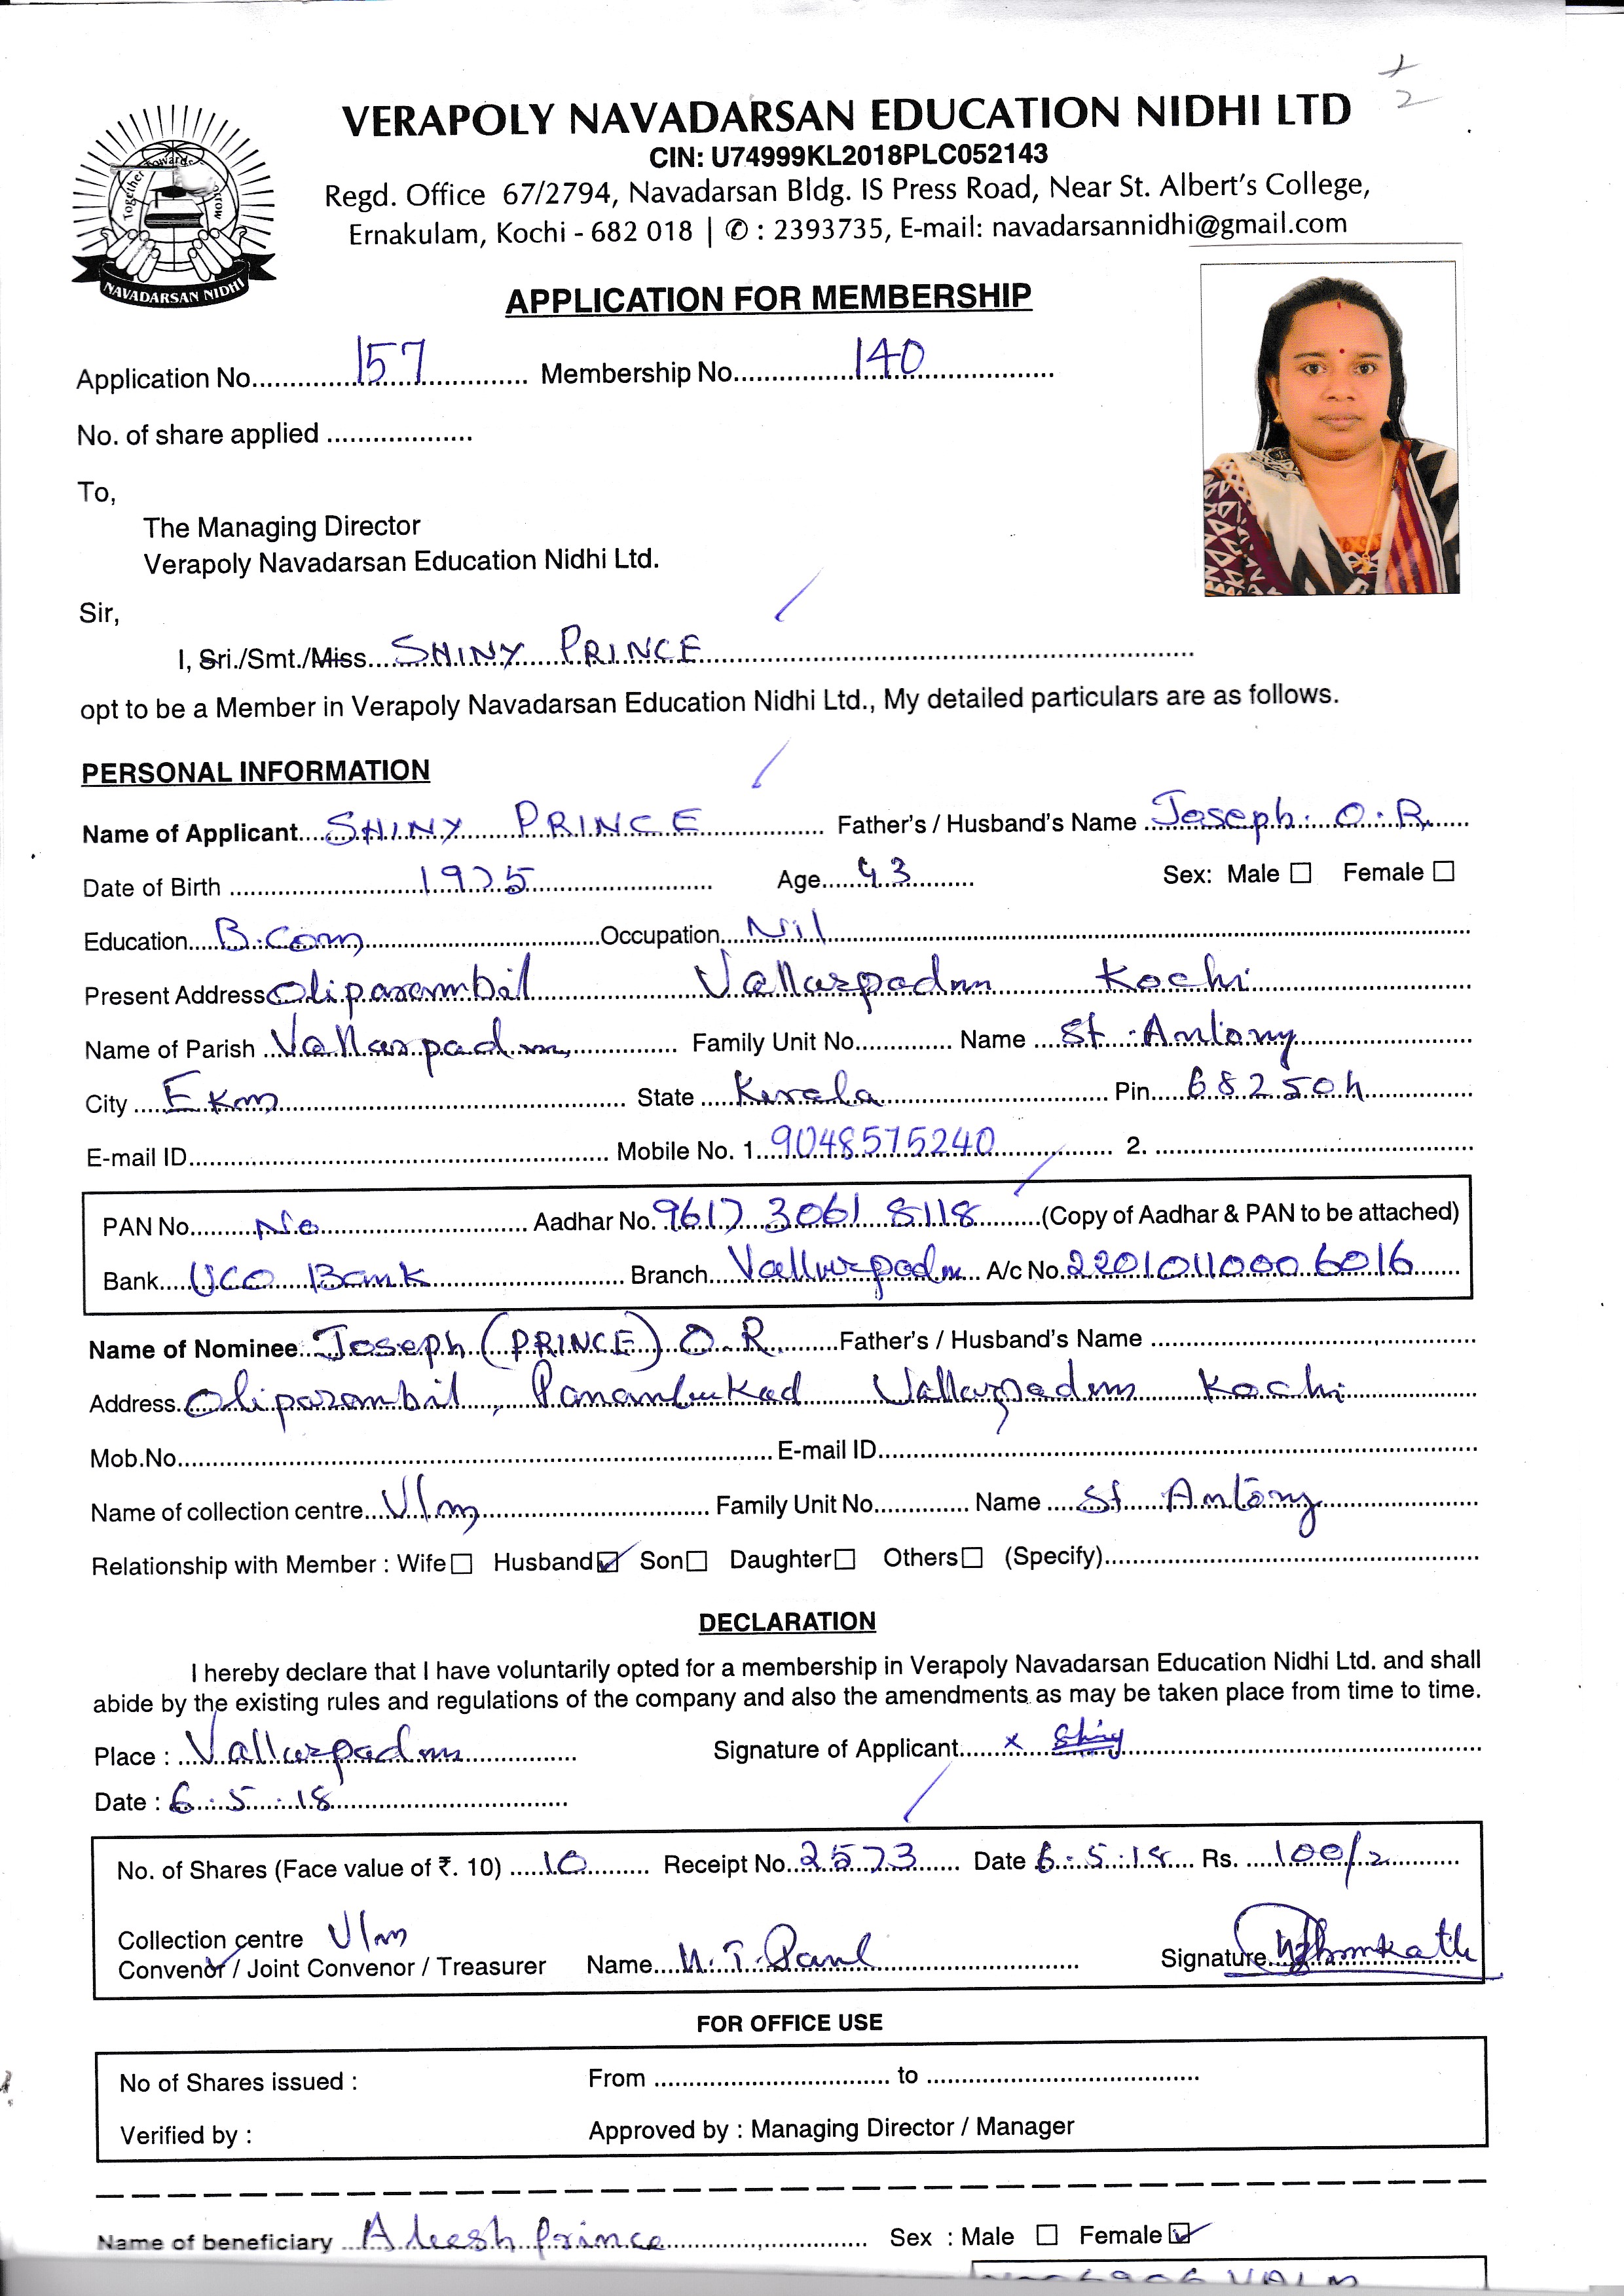 VERAPOLY NAVADARSAN EDUCATION NIDHI LTD
CIN: U74999KL2018PLC052143
Regd. Office 67/2794, Navadarsan Bldg. IS Press Road, Near St. Albert's College,
Ernakulam, Kochi - 682 018 | ✆ : 2393735, E-mail: navadarsannidhi@gmail.com
Together Towards
NAVADARSAN NIDHI
APPLICATION FOR MEMBERSHIP
Application No. 157 Membership No. 140
No. of share applied
To,
The Managing Director
Verapoly Navadarsan Education Nidhi Ltd.
Sir,
I, Sri./Smt./Miss SHINY PRINCE
opt to be a Member in Verapoly Navadarsan Education Nidhi Ltd., My detailed particulars are as follows.
PERSONAL INFORMATION
Name of Applicant SHINY PRINCE Father's / Husband's Name Joseph. O.R.
Date of Birth 1975 Age 43 Sex: Male ☐ Female ☐
Education B.Com Occupation Nil
Present Address Oliparambil Vallarpadam Kochi
Name of Parish Vallarpadam Family Unit No. Name St. Antony
City Ekm State Kerala Pin 682504
E-mail ID Mobile No. 1 9048575240 2.
PAN No. No Aadhar No. 9617 3061 8118 (Copy of Aadhar & PAN to be attached)
Bank UCO Bank Branch Vallarpadam A/c No. 22010110006016
Name of Nominee Joseph (PRINCE) O.R. Father's / Husband's Name
Address Oliparambil, Panambukad Vallarpadam Kochi
Mob.No. E-mail ID
Name of collection centre Vlm Family Unit No. Name St Antony
Relationship with Member : Wife ☐ Husband ☑ Son ☐ Daughter ☐ Others ☐ (Specify)
DECLARATION
I hereby declare that I have voluntarily opted for a membership in Verapoly Navadarsan Education Nidhi Ltd. and shall
abide by the existing rules and regulations of the company and also the amendments as may be taken place from time to time.
Place : Vallarpadam Signature of Applicant x Shiny
Date : 6.5.18
No. of Shares (Face value of ₹. 10) 10 Receipt No. 2573 Date 6.5.18 Rs. 100/-
Collection centre Vlm
Convenor / Joint Convenor / Treasurer Name M.T. Paul Signature
FOR OFFICE USE
No of Shares issued : From to
Verified by : Approved by : Managing Director / Manager
Name of beneficiary Aleesh Prince Sex : Male ☐ Female ☑